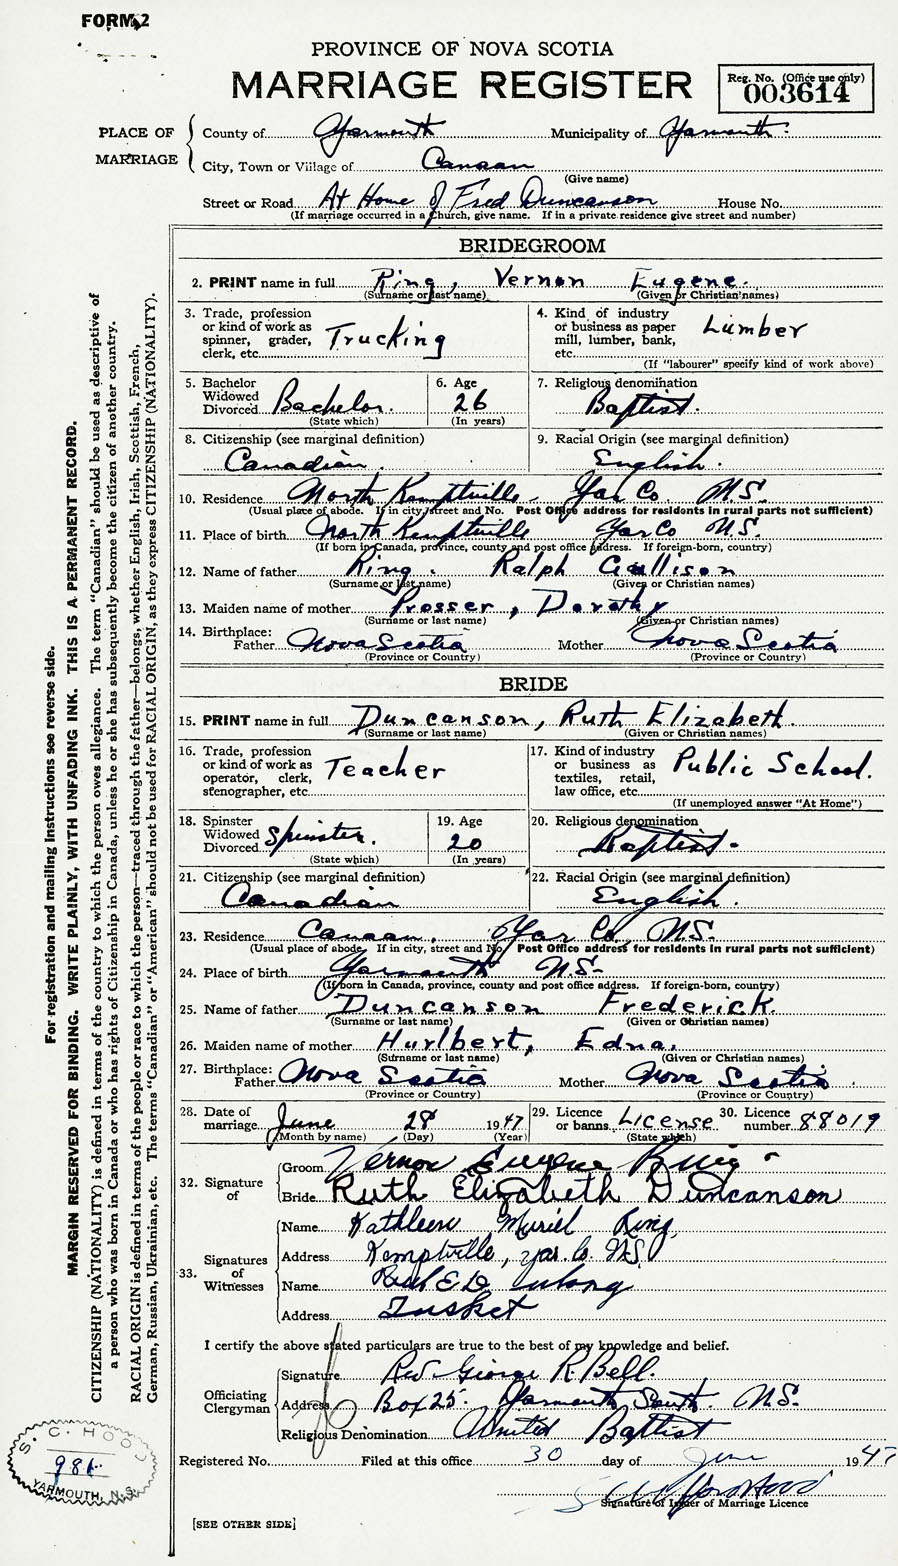 FORM 2
PROVINCE OF NOVA SCOTIA
MARRIAGE REGISTER
Reg. No. (Office use only)
003614
PLACE OF MARRIAGE
County of Yarmouth Municipality of Yarmouth
City, Town or Village of Canaan
(Give name)
Street or Road At Home of Fred Duncanson House No.
(If marriage occurred in a Church, give name. If in a private residence give street and number)
BRIDEGROOM
2. PRINT name in full Ring, Vernon Eugene.
(Surname or last name) (Given or Christian names)
3. Trade, profession or kind of work as spinner, grader, clerk, etc. Trucking
4. Kind of industry or business as paper mill, lumber, bank, etc. Lumber
(If "labourer" specify kind of work above)
5. Bachelor Widowed Divorced Bachelor.
(State which)
6. Age 26
(In years)
7. Religious denomination
Baptist.
8. Citizenship (see marginal definition)
Canadian.
9. Racial Origin (see marginal definition)
English.
10. Residence North Kemptville Yar Co. N.S.
(Usual place of abode. If in city, street and No. Post Office address for residents in rural parts not sufficient)
11. Place of birth North Kemptville Yar Co N.S.
(If born in Canada, province, county and post office address. If foreign-born, country)
12. Name of father Ring. Ralph Gallison
(Surname or last name) (Given or Christian names)
13. Maiden name of mother Prosser, Dorothy
(Surname or last name) (Given or Christian names)
14. Birthplace: Father Nova Scotia Mother Nova Scotia
(Province or Country) (Province or Country)
BRIDE
15. PRINT name in full Duncanson, Ruth Elizabeth.
(Surname or last name) (Given or Christian names)
16. Trade, profession or kind of work as operator, clerk, stenographer, etc. Teacher
17. Kind of industry or business as textiles, retail, law office, etc. Public School.
(If unemployed answer "At Home")
18. Spinster Widowed Divorced Spinster.
(State which)
19. Age 20
(In years)
20. Religious denomination
Baptist.
21. Citizenship (see marginal definition)
Canadian
22. Racial Origin (see marginal definition)
English.
23. Residence Canaan, Yar Co, N.S.
(Usual place of abode. If in city, street and No. Post Office address for residents in rural parts not sufficient)
24. Place of birth Yarmouth N.S.
(If born in Canada, province, county and post office address. If foreign-born, country)
25. Name of father Duncanson Frederick.
(Surname or last name) (Given or Christian names)
26. Maiden name of mother Hurlbert, Edna.
(Surname or last name) (Given or Christian names)
27. Birthplace: Father Nova Scotia Mother Nova Scotia
(Province or Country) (Province or Country)
28. Date of marriage June 28 1947
(Month by name) (Day) (Year)
29. Licence or banns License
(State which)
30. Licence number 88019
32. Signature of
Groom Vernon Eugene Ring
Bride Ruth Elizabeth Duncanson
33. Signatures of Witnesses
Name Kathleen Muriel Ring
Address Kemptville, Yar. Co. N.S.
Name
Address Tusket
I certify the above stated particulars are true to the best of my knowledge and belief.
Officiating Clergyman
Signature Rev George R. Bell.
Address Box 25. Yarmouth South. N.S.
Religious Denomination United Baptist
Registered No. Filed at this office 30 day of June 1947
Signature of Issuer of Marriage Licence
[SEE OTHER SIDE]
For registration and mailing instructions see reverse side.
MARGIN RESERVED FOR BINDING. WRITE PLAINLY, WITH UNFADING INK. THIS IS A PERMANENT RECORD.
CITIZENSHIP (NATIONALITY) is defined in terms of the country to which the person owes allegiance. The term "Canadian" should be used as descriptive of
a person who was born in Canada or who has rights of Citizenship in Canada, unless he or she has subsequently become the citizen of another country.
RACIAL ORIGIN is defined in terms of the people or race to which the person—traced through the father—belongs, whether English, Irish, Scottish, French,
German, Russian, Ukrainian, etc. The terms "Canadian" or "American" should not be used for RACIAL ORIGIN, as they express CITIZENSHIP (NATIONALITY).
S. C. HOOD
981
YARMOUTH, N.S.